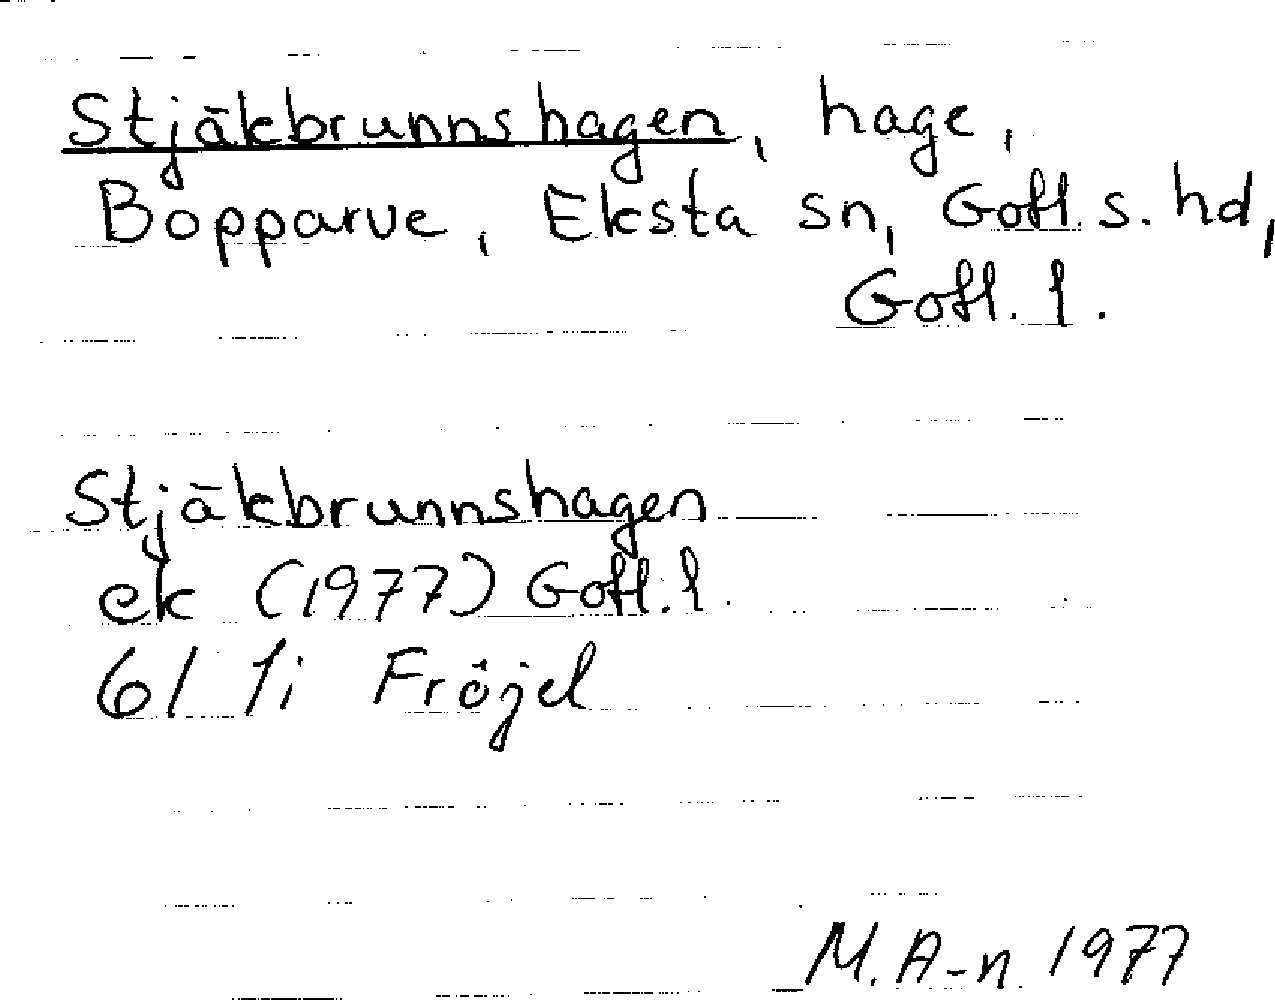 Stjäkbrunnshagen, hage,
Bopparve, Eksta sn, Gotl. s. hd,
Gotl. l.
Stjäkbrunnshagen
ek (1977) Gotl. l.
6I 1i Fröjel
M. A-n 1977